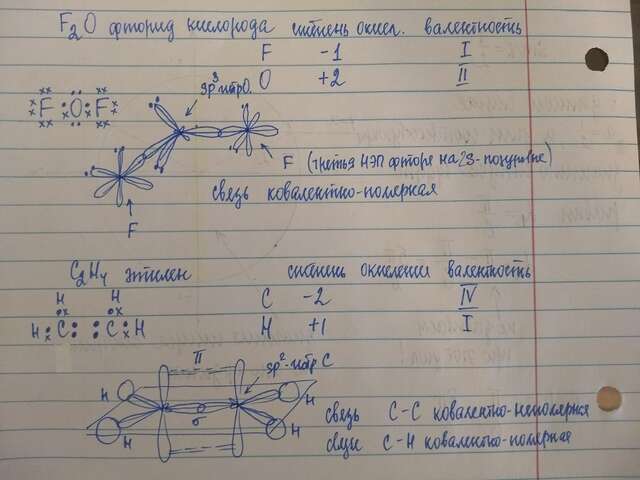 F₂O фторид кислорода степень окисл. валентность
F -1 I
O +2 II
sp³-гибр O.
F O F
F (третья НЭП фтора на 2s-подуровне)
связь ковалентно-полярная
F
C₂H₄ этилен степень окисления валентность
H H
C -2 IV
H C C H
H +1 I
π
sp²-гибр C
H H
σ
связь C-C ковалентно-неполярная
H H
связи C-H ковалентно-полярная